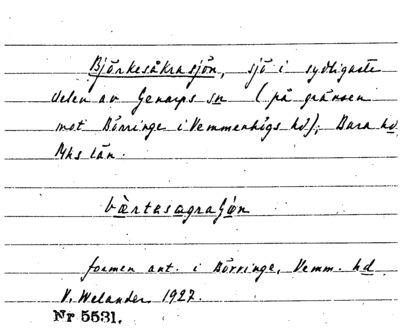 Björkesåkrasjön, sjö i sydligaste
delen av Genarps sn (på gränsen
mot Börringe i Vemmenhögs hd); Bara hd
Mhs län.
bèrtasagraſjön
formen ant. i Börringe, Vemm. hd
V. Welander 1927.
Nr 5531.